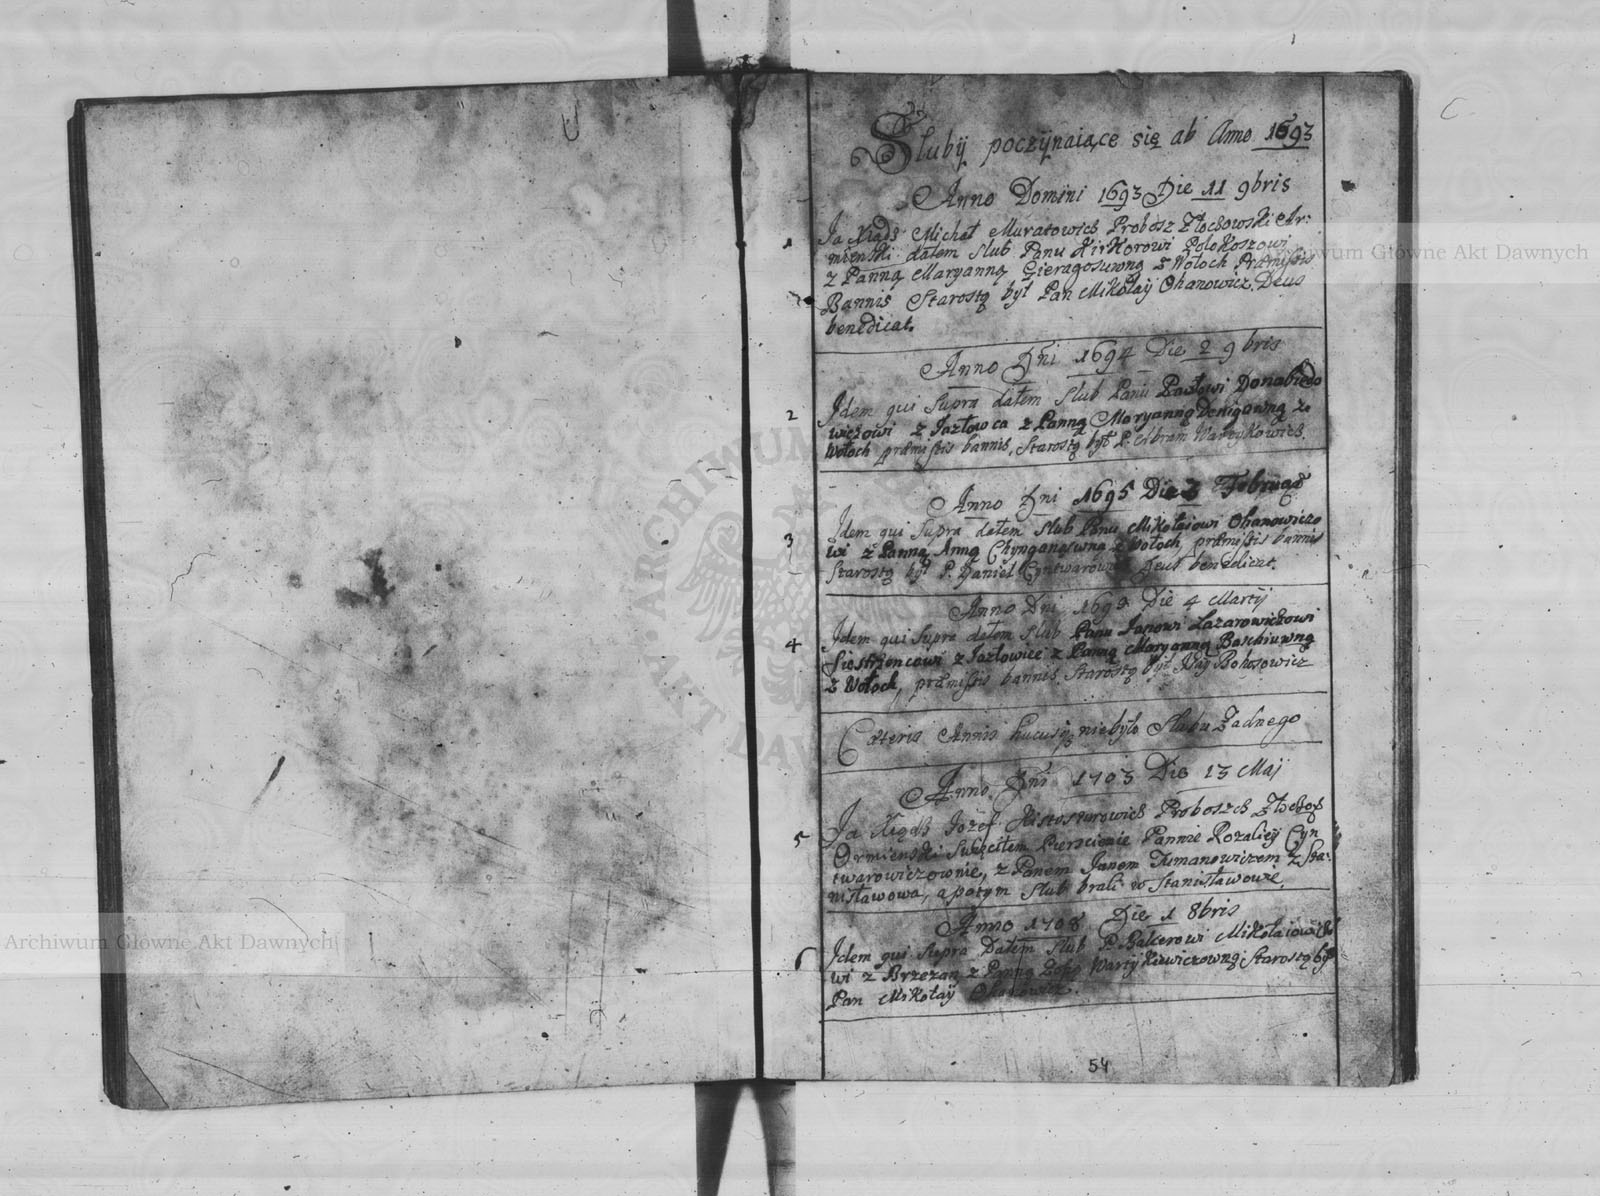 Sluby poczynaiące się ab Anno 1693
Anno Domini 1693 Die 11 9bris
1 Ja Xiądz Michał Muratowicz Probosz Złochowski Ar:
mienski dałem Slub Panu Kirkorowi
z Panną Maryanną z Wołoch
Bannis Starostą był Pan Mikołay Ohanowicz. Deus
benedicat.
Anno Dni 1694 Die 2 9bris
2 Idem qui Supra dałem Slub Panu Pawłowi Donabiedo
wiczowi z Jazłowca z Panną Maryanną ze
Wołoch præmissis bannis, Starostą był P. Abram Wartykowicz.
Anno Dni 1695 Die 3
3 Idem qui Supra dałem Slub Panu Mikołaiowi Ohanowiczo
wi z Panną Anną z Wołoch, præmissis bannis
Starostą był P. Daniel Deus benedicat.
Anno Dni Die 4 Martij
4 Idem qui Supra dałem Slub Panu Janowi Łazarowiczowi
z Panną Maryanną
z Wołoch, præmissis bannis. Starostą był Bohosowicz
Cæteris Annis hucusq niebyło Slubu Żadnego
Anno Dni 1703 Die 13 Maij
5 Ja Xiądz Jozef Proboszcz
Ormienski Swięciłem Pierscienie Pannie Rozaliey Cyn
twarowiczownie, z Panem Janem Tumanowiczem z Sta:
nisławowa, a potym Slub brali w Stanisławowie.
Anno 1708 Die 1 8bris
6 Idem qui Supra Dałem Slub P. Mikołaiowiczo
wi z Brzezan z Panną Zofią Starostą był
Pan Mikołay Ohanowicz.
54
Archiwum Główne Akt Dawnych
Archiwum Główne Akt Dawnych
ARCHIWUM AKT DAWN